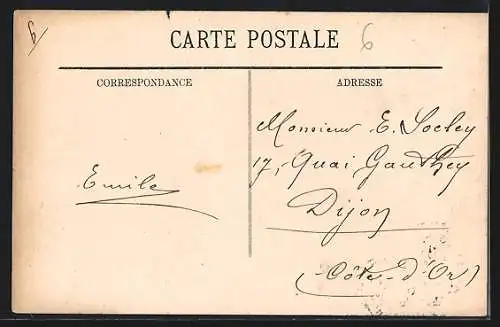 6
CARTE POSTALE 6
CORRESPONDANCE
Emile
ADRESSE
Monsieur E. Socley
17, Quai Gauthey
Dijon
(Côte-d'Or)